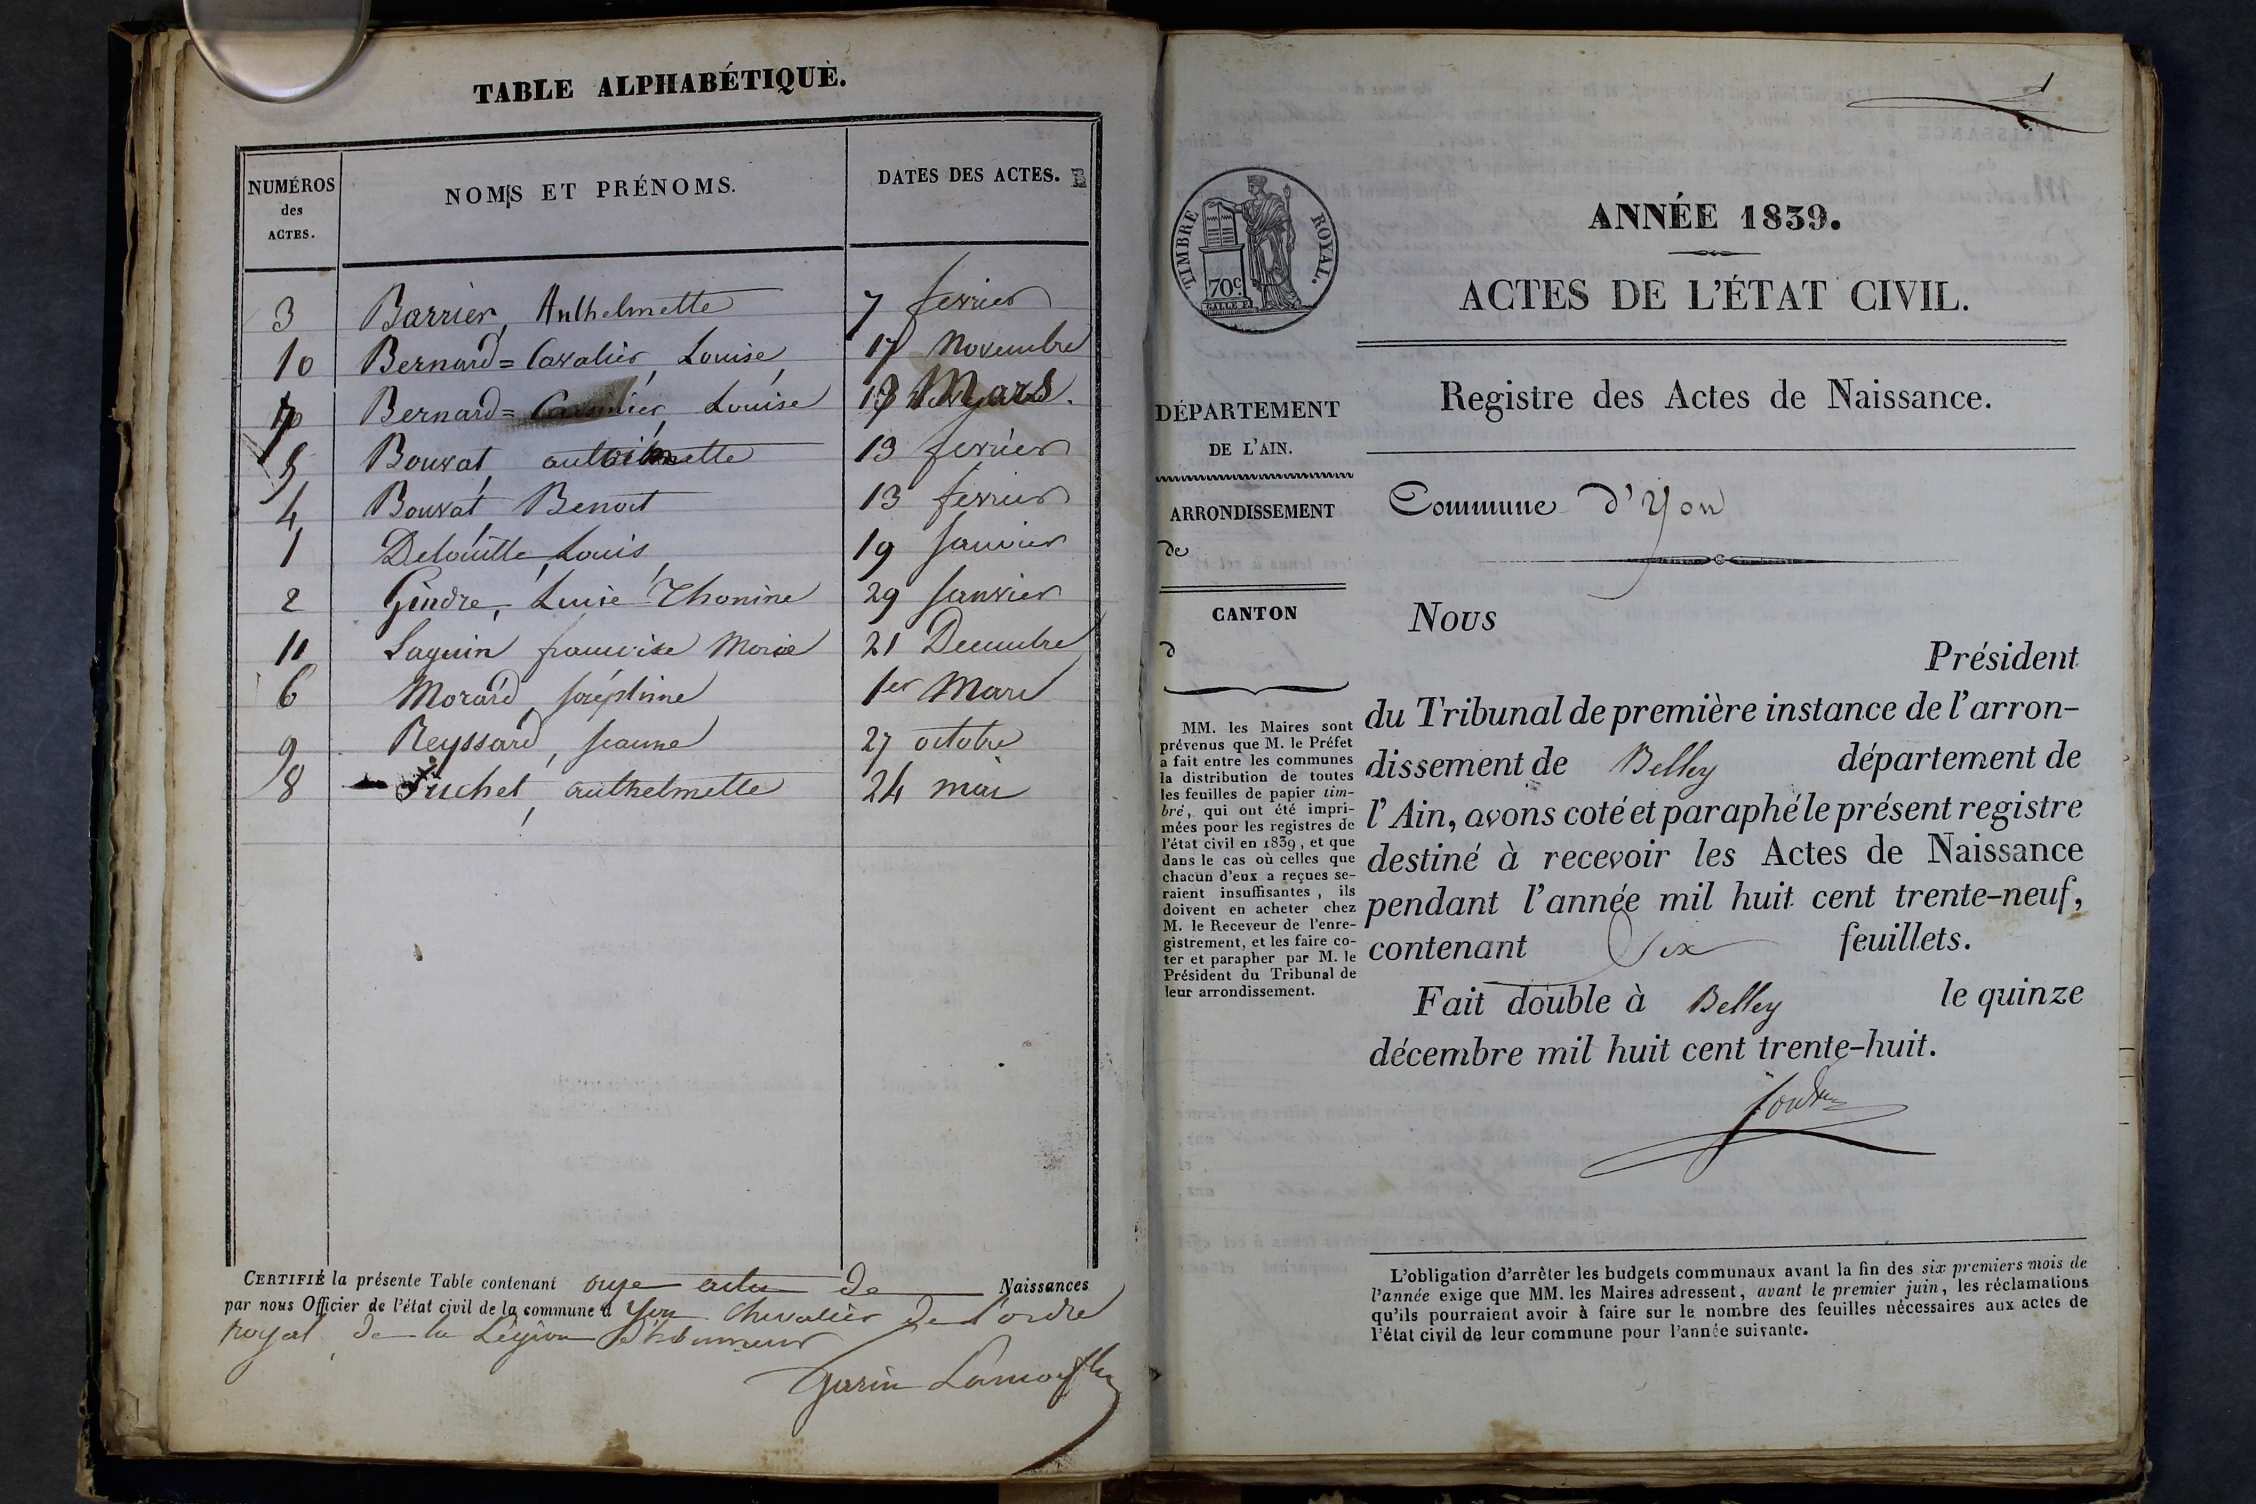 TABLE ALPHABÉTIQUE.
NUMÉROS des ACTES. NOMS ET PRÉNOMS. DATES DES ACTES.
3 Barrier, Anthelmette 7 fevrier
10 Bernard=Cavalier, Louise 17 Novembre
7 Bernard= Louise Mars.
5 Bouvat, 13 fevrier
4 Bouvat Benoit 13 fevrier
1 Delouille, Louis 19 Janvier
2 Gindre, Luise Thonine 29 Janvier
11 Laguin francoise Marie 21 Decembre
6 Morard Joséphine 1er Mars
9 Reyssard, Jeanne 27 octobre
8 Suchet, anthelmette 24 mai
CERTIFIÉ la présente Table contenant onze actes de Naissances
par nous Officier de l'état civil de la commune d'Yon chevalier de l'ordre
royal de la Légion d'honneur
Garin Lamorflan
1
TIMBRE ROYAL.
70c
ANNÉE 1839.
ACTES DE L'ÉTAT CIVIL.
Registre des Actes de Naissance.
DÉPARTEMENT
DE L'AIN.
ARRONDISSEMENT
de
CANTON
d
MM. les Maires sont
prévenus que M. le Préfet
a fait entre les communes
la distribution de toutes
les feuilles de papier tim-
bré, qui ont été impri-
mées pour les registres de
l'état civil en 1839, et que
dans le cas où celles que
chacun d'eux a reçues se-
raient insuffisantes, ils
doivent en acheter chez
M. le Receveur de l'enre-
gistrement, et les faire co-
ter et parapher par M. le
Président du Tribunal de
leur arrondissement.
Commune d'Yon
Nous
Président
du Tribunal de première instance de l'arron-
dissement de Belley département de
l'Ain, avons coté et paraphé le présent registre
destiné à recevoir les Actes de Naissance
pendant l'année mil huit cent trente-neuf,
contenant Six feuillets.
Fait double à Belley le quinze
décembre mil huit cent trente-huit.
L'obligation d'arrêter les budgets communaux avant la fin des six premiers mois de
l'année exige que MM. les Maires adressent, avant le premier juin, les réclamations
qu'ils pourraient avoir à faire sur le nombre des feuilles nécessaires aux actes de
l'état civil de leur commune pour l'année suivante.